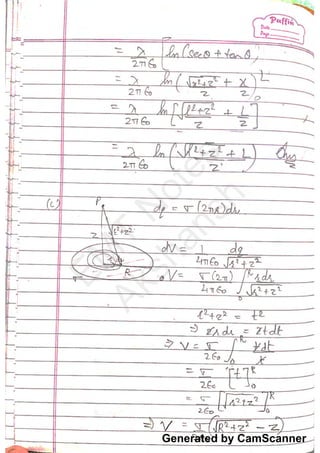 Puffin
Date
Page
= λ/2πε₀ [ln(secθ + tanθ)]
= λ/2πε₀ ln(√(x²+z²)/z + x/z)₀ᴸ
= λ/2πε₀ ln[√(l²+z²)/z + L/z]
= λ/2πε₀ ln(√(l²+z²) + L / z) Ans
(c) P dq = σ(2πr)dr.
√(r²+z²)
z
r R
σ
dV = 1/4πε₀ dq/√(r²+z²)
∴ V = σ(2π)/4πε₀ ∫₀ᴿ rdr/√(r²+z²)
r²+z² = t²
⇒ 2rdr = 2tdt
⇒ V = σ/2ε₀ ∫₀ᴿ tdt/t
= σ/2ε₀ [t]₀ᴿ
= σ/2ε₀ [√(r²+z²)]₀ᴿ
⇒ V = σ/2ε₀ (√(R²+z²) − z)
Generated by CamScanner